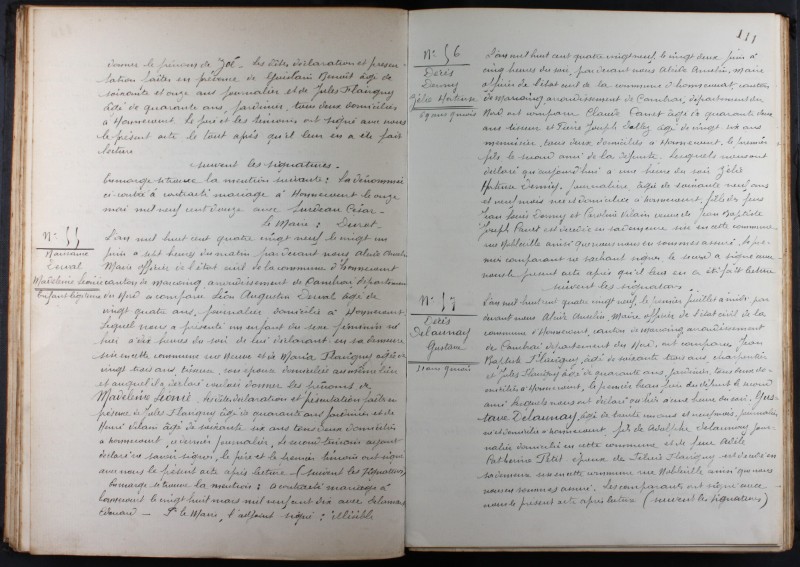 donner le prénoms de Zoé. Les dites déclaration et présen-
tation faites en présence de Ghuilain Benoit âgé de
soixante et onze ans journalier et de Jules Flavigny
âgé de quarante ans, jardinier, tous deux domiciliés
à Honnecourt. Le père et les témoins ont signé avec nous
le présent acte le tout après qu'il leur en a été fait
lecture
suivent les signatures.
En marge se trouve la mention suivante : La dénommée
ci contre à contracté mariage à Honnecourt le onze
mai mil neuf cent douze avec César.
le Maire :
N° 55
Naissance
Duval
Madeleine Léonie
Enfant légitime
L'an mil huit cent quatre vingt neuf le vingt un
juin à sept heures du matin par devant nous Alcide Amelin
Maire officier de l'état civil de la commune d'Honnecourt
canton de Marcoing, arrondissement de Cambrai, département
du Nord a comparu Léon Augustin Duval âgé de
vingt quatre ans, journalier domicilié à Honnecourt
lequel nous a présenté un enfant du sexe féminin né
hier à dix heures du soir de lui déclarant en sa demeure
sise en cette commune rue Neuve et de Maria Flavigny âgée de
vingt trois ans, son épouse domiciliée avec lui
et auquel il a déclaré vouloir donner les prénoms de
Madeleine Léonie. déclaration et présentation faites en
présence de Jules Flavigny âgé de quarante ans jardinier et de
Henri Vilain âgé de soixante six ans tous deux domiciliés
à Honnecourt, journalier, le second témoin ayant
déclaré ne savoir signer, le père et le premier témoin ont signé
avec nous le présent acte après lecture (suivent les signatures)
En marge se trouve la mention : a contracté mariage à
Honnecourt le vingt huit mars mil neuf cent dix avec Delannoy
Edouard — Pr le Maire, l'adjoint signé : illisible
111
N° 56
Décès
Denny
Zélie Hortense
69 ans 9 mois
L'an mil huit cent quatre vingt neuf, le vingt deux juin à
cinq heures du soir, par devant nous Alcide Amelin, Maire
officier de l'état civil de la commune d'Honnecourt canton
de Marcoing arrondissement de Cambrai, département du
Nord ont comparu Claude Canet âgé de quarante deux
ans tisseur et Pierre Joseph âgé de vingt six ans
menuisier, tous deux domiciliés à Honnecourt, le premier
fils le second ami de la défunte. Lesquels nous ont
déclaré qu'aujourd'hui à une heure du soir Zélie
Hortense Denny, journalière, âgée de soixante neuf ans
et neuf mois née et domiciliée à Honnecourt, fille des feus
Jean Louis Denny et Caroline Vilain veuve de Jean Baptiste
Joseph Canet est décédée en sa demeure sise en cette commune
rue Mobleuille ainsi que nous nous en sommes assuré. Le pre-
mier comparant ne sachant signer, le second a signé avec
nous le présent acte après qu'il leur en a été fait lecture
suivent les signatures
N° 57
Décès
Delaunay
Gustave
L'an mil huit cent quatre vingt neuf, le premier juillet à midi par
devant nous Alcide Amelin Maire officier de l'état civil de la
commune d'Honnecourt, canton de Marcoing arrondissement
de Cambrai département du Nord, ont comparu Jean
Baptiste Flavigny, âgé de soixante trois ans, charpentier
et Jules Flavigny âgé de quarante ans, jardinier, tous deux do-
miciliés à Honnecourt, le premier beau père du défunt le second
ami lesquels nous ont déclaré qu'hier à une heure du soir, Gus-
tave Delaunay, âgé de trente un ans et neuf mois, journalier
né et domicilié à Honnecourt fils de Adolphe Delaunay jour-
nalier domicilié en cette commune et de feue Adèle
Catherine Petit époux de Flavigny est décédé en
sa demeure sise en cette commune rue Mobleuille ainsi que nous
nous en sommes assuré. Les comparants ont signé avec
nous le présent acte après lecture (suivent les signatures)